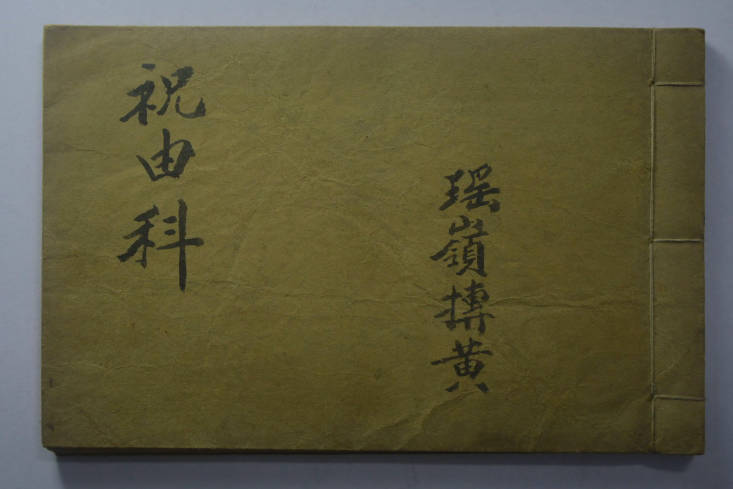 瑶嶺摶黄
祝由科